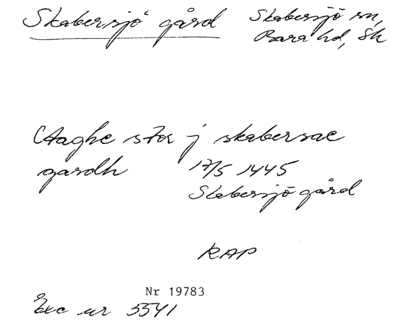 Skabersjö gård Skabersjö sn,
Bara hd, Sk
Aaghe stor j skabersae
gardh 17/5 1445
Skabersjö gård
RAP
Nr 19783
Exc ur 5541